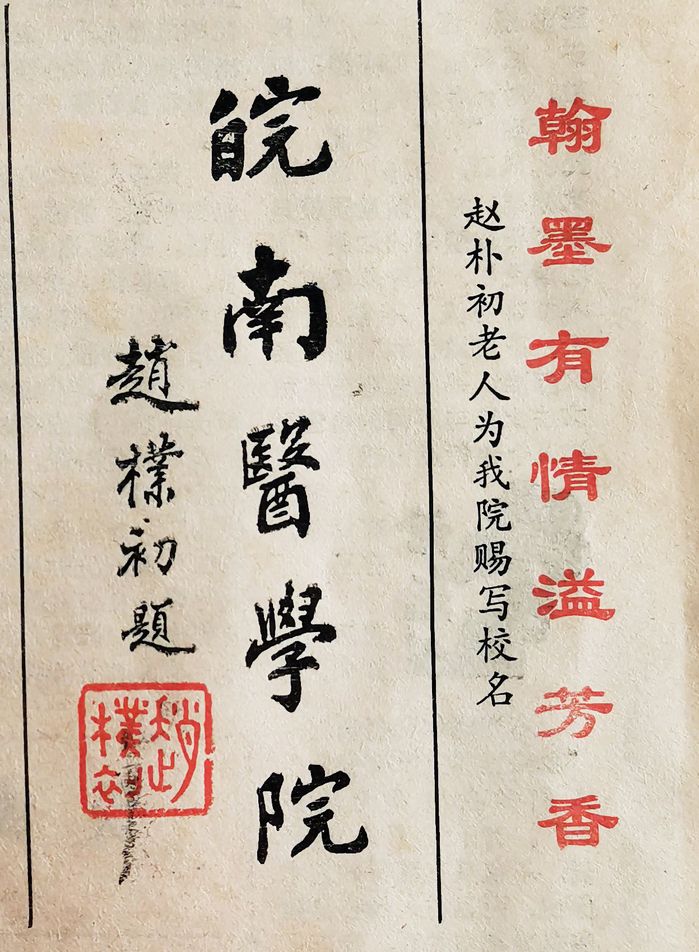 翰墨有情溢芳香
赵朴初老人为我院赐写校名
皖南醫學院
趙樸初題
趙樸初